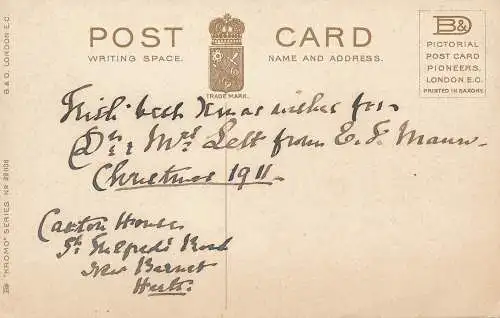 POST CARD
WRITING SPACE. NAME AND ADDRESS.
TRADE MARK.
B&D
PICTORIAL
POST CARD
PIONEERS.
LONDON E.C.
PRINTED IN SAXONY.
B & D. LONDON E.C.
"KROMO" SERIES NR
With best Xmas wishes for
Dr & Mrs Lett from E. F.
Christmas 1911
Caxton House
St. Road
New Barnet
Herts.